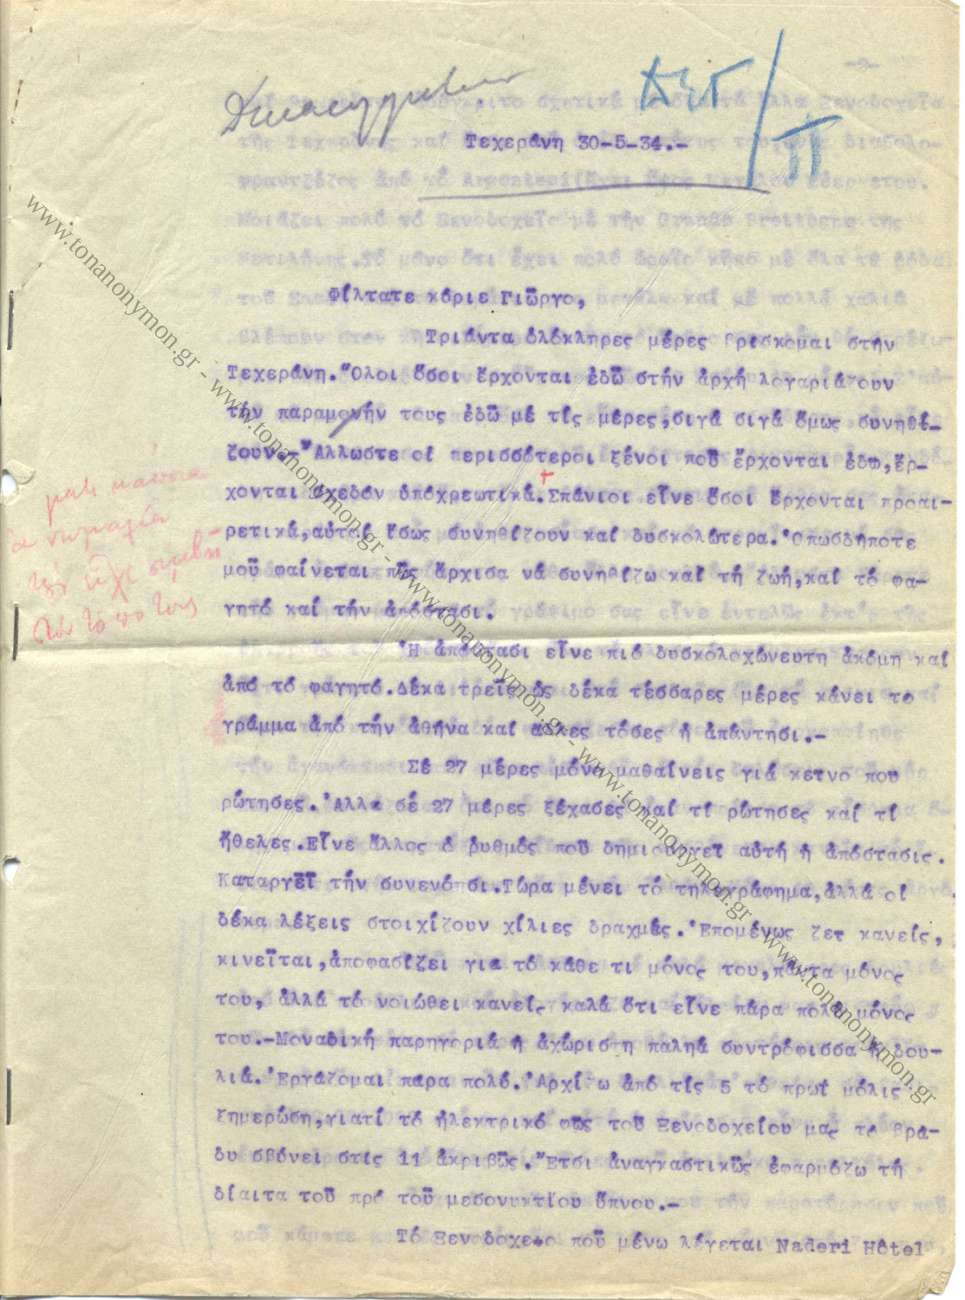 Τεχεράνη 30-5-34.-
Φίλτατε κύριε Γιῶργο,
Τριάντα ὁλόκληρες μέρες βρίσκομαι στήν
Τεχεράνη. Ὅλοι ὅσοι ἔρχονται ἐδῶ στήν ἀρχή λογαριάζουν
τήν παραμονήν τους ἐδῶ μέ τίς μέρες,σιγά σιγά ὅμως συνηθί-
ζουν.-Ἄλλωστε οἱ περισσότεροι ξένοι ποῦ ἔρχονται ἐδῶ,ἔρ-
χονται σχεδόν ὑποχρεωτικά.Σπάνιοι εἶνε ὅσοι ἔρχονται προαι-
ρετικά,αὐτοί ἴσως συνηθίζουν καί δυσκολώτερα.Ὁπωσδήποτε
μοῦ φαίνεται πῶς ἄρχισα νά συνηθίζω καί τή ζωή,καί τό φα-
γητό καί τήν ἀπόστασι.
Ἡ ἀπόστασι εἶνε πιό δυσκολοχώνευτη ἀκόμη καί
ἀπό τό φαγητό.Δέκα τρεῖς ὡς δέκα τέσσαρες μέρες κάνει το
γράμμα ἀπό τήν ἀθήνα καί ἄλλες τόσες ἡ ἀπάντησι.-
Σέ 27 μέρες μόνο μαθαίνεις γιά κεῖνο που
ρώτησες.Ἀλλά σέ 27 μέρες ξέχασες καί τί ρώτησες καί τί
ἤθελες.Εἶνε ἄλλος ὁ ρυθμός ποῦ δημιουργεῖ αὐτή ἡ ἀπόστασις.
Καταργεῖ τήν συνενόησι.Τώρα μένει τό τηλεγράφημα,ἀλλά οἱ
δέκα λέξεις στοιχίζουν χίλιες δραχμές.Ἐπομένως ζεῖ κανείς,
κινεῖται,ἀποφασίζει για τό κάθε τι μόνος του,πάντα μόνος
του, ἀλλά τό νοιώθει κανείς καλά ὅτι εἶνε πάρα πολύ μόνος
του.-Μοναδική παρηγοριά ἡ ἀχώριστη παληά συντρόφισσα ἡ δου-
λιά.Ἐργάζομαι παρα πολύ.Ἀρχίζω ἀπό τίς 5 τό πρωί μόλις
ξημερώση,γιατί τό ἠλεκτρικό φῶς τοῦ Ξενοδοχείου μας το βρά-
δυ σβύνει στίς 11 ἀκριβῶς.Ἔτσι ἀναγκαστικῶς ἐφαρμόζω τή
δίαιτα τοῦ πρό τοῦ μεσονυκτίου ὕπνου.-
Τό Ξενοδοχεῖο ποῦ μένω λέγεται Naderi Hôtel
www.tonanonymon.gr - www.tonanonymon.gr - www.tonanonymon.gr - www.tonanonymon.gr - www.tonanonymon.gr